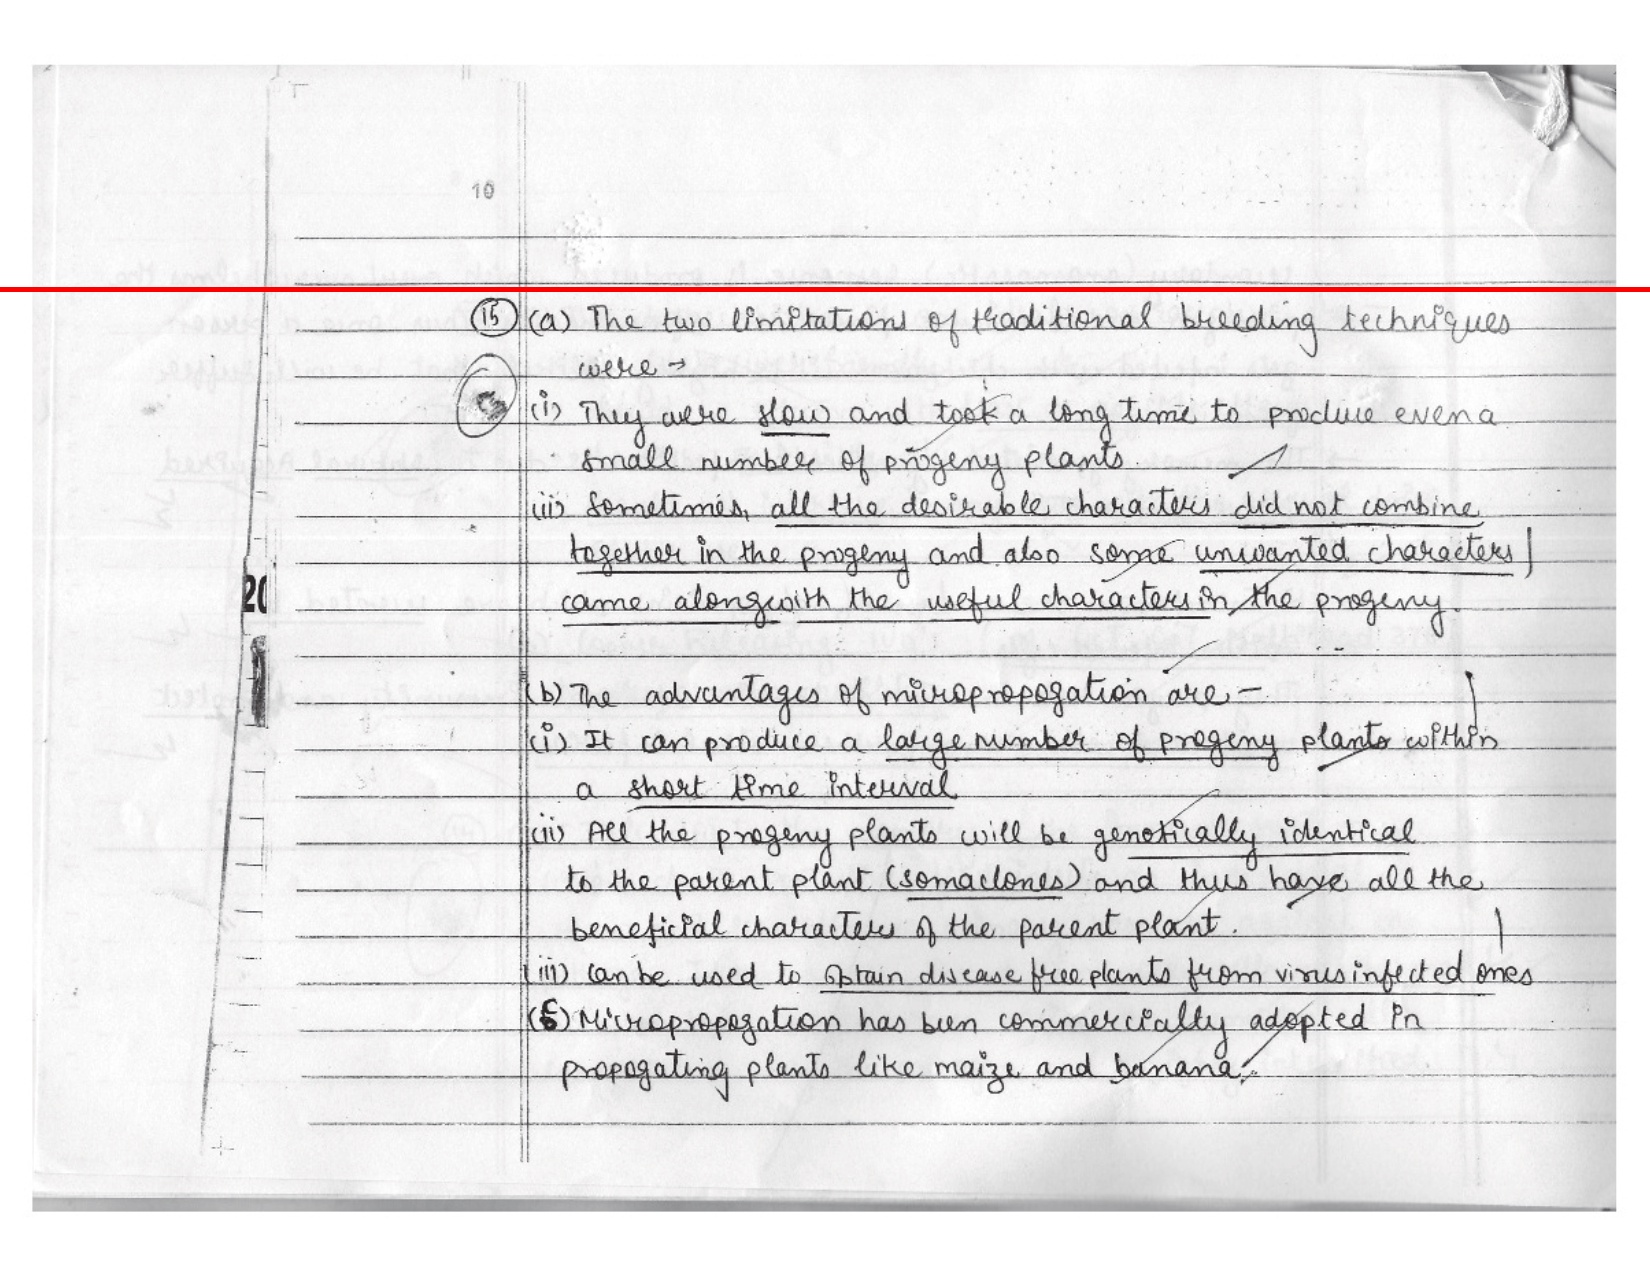 10
15 (a) The two limitations of traditional breeding techniques
were →
(i) They were slow and took a long time to produce even a
small number of progeny plants
(ii) Sometimes, all the desirable characters did not combine
together in the progeny and also some unwanted characters
20
came alongwith the useful characters in the progeny.
(b) The advantages of micropropogation are –
(i) It can produce a large number of progeny plants within
a short time interval
(ii) All the progeny plants will be genetically identical
to the parent plant (somaclones) and thus have all the
beneficial characters of the parent plant.
(iii) can be used to obtain disease free plants from virus infected ones
(c) Micropropogation has been commercially adopted in
propogating plants like maize and banana.